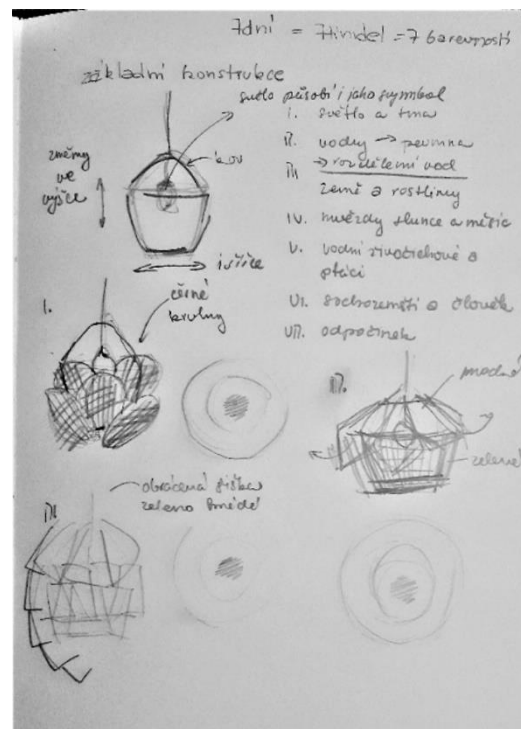 7dní = 7 svítidel = 7 barevností
základní konstrukce
světlo působí i jako symbol
I. světlo a tma
II. vody → pevnina
III → rozdělení vod
země a rostliny
IV. hvězdy slunce a měsíc
V. vodní živočichové a
ptáci
VI. suchozemští a člověk
VII. odpočinek
změny
ve
výšce
kov
i šířce
I.
černé
kruhy
II.
modrá
zelené
III
obrácená šiška
zeleno hnědé